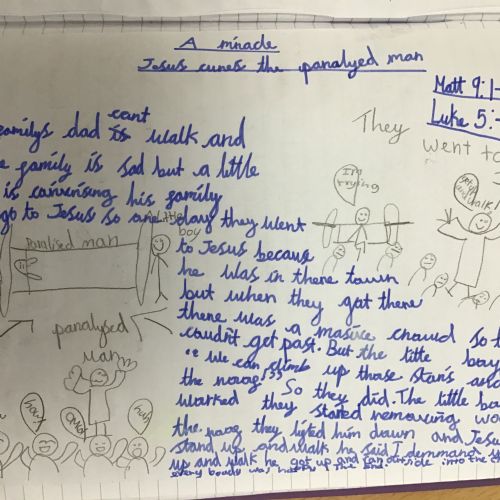 A miracle
Jesus cures the paralyed man
Matt 9:1-
Luke 5:-
They
went to
familys dad cant is walk and
e family is sad but a little
is convirsing his family
go to Jesus so one day they went
to Jesus becaus
he was in there town
but when they got there
there was a masive crowd so t
couldn't get past. But the little boy
"We can climb up those stairs and
the roof" So they did. The little bo
worked they stared removing wo
the roof they lifted him down and Jesu
stand up and walk he said I demmand y
up and walk he got up and ran outside into the
every boudy was the end.
Im
trying
a little
boy
paralised man
paralysed
man
OMG